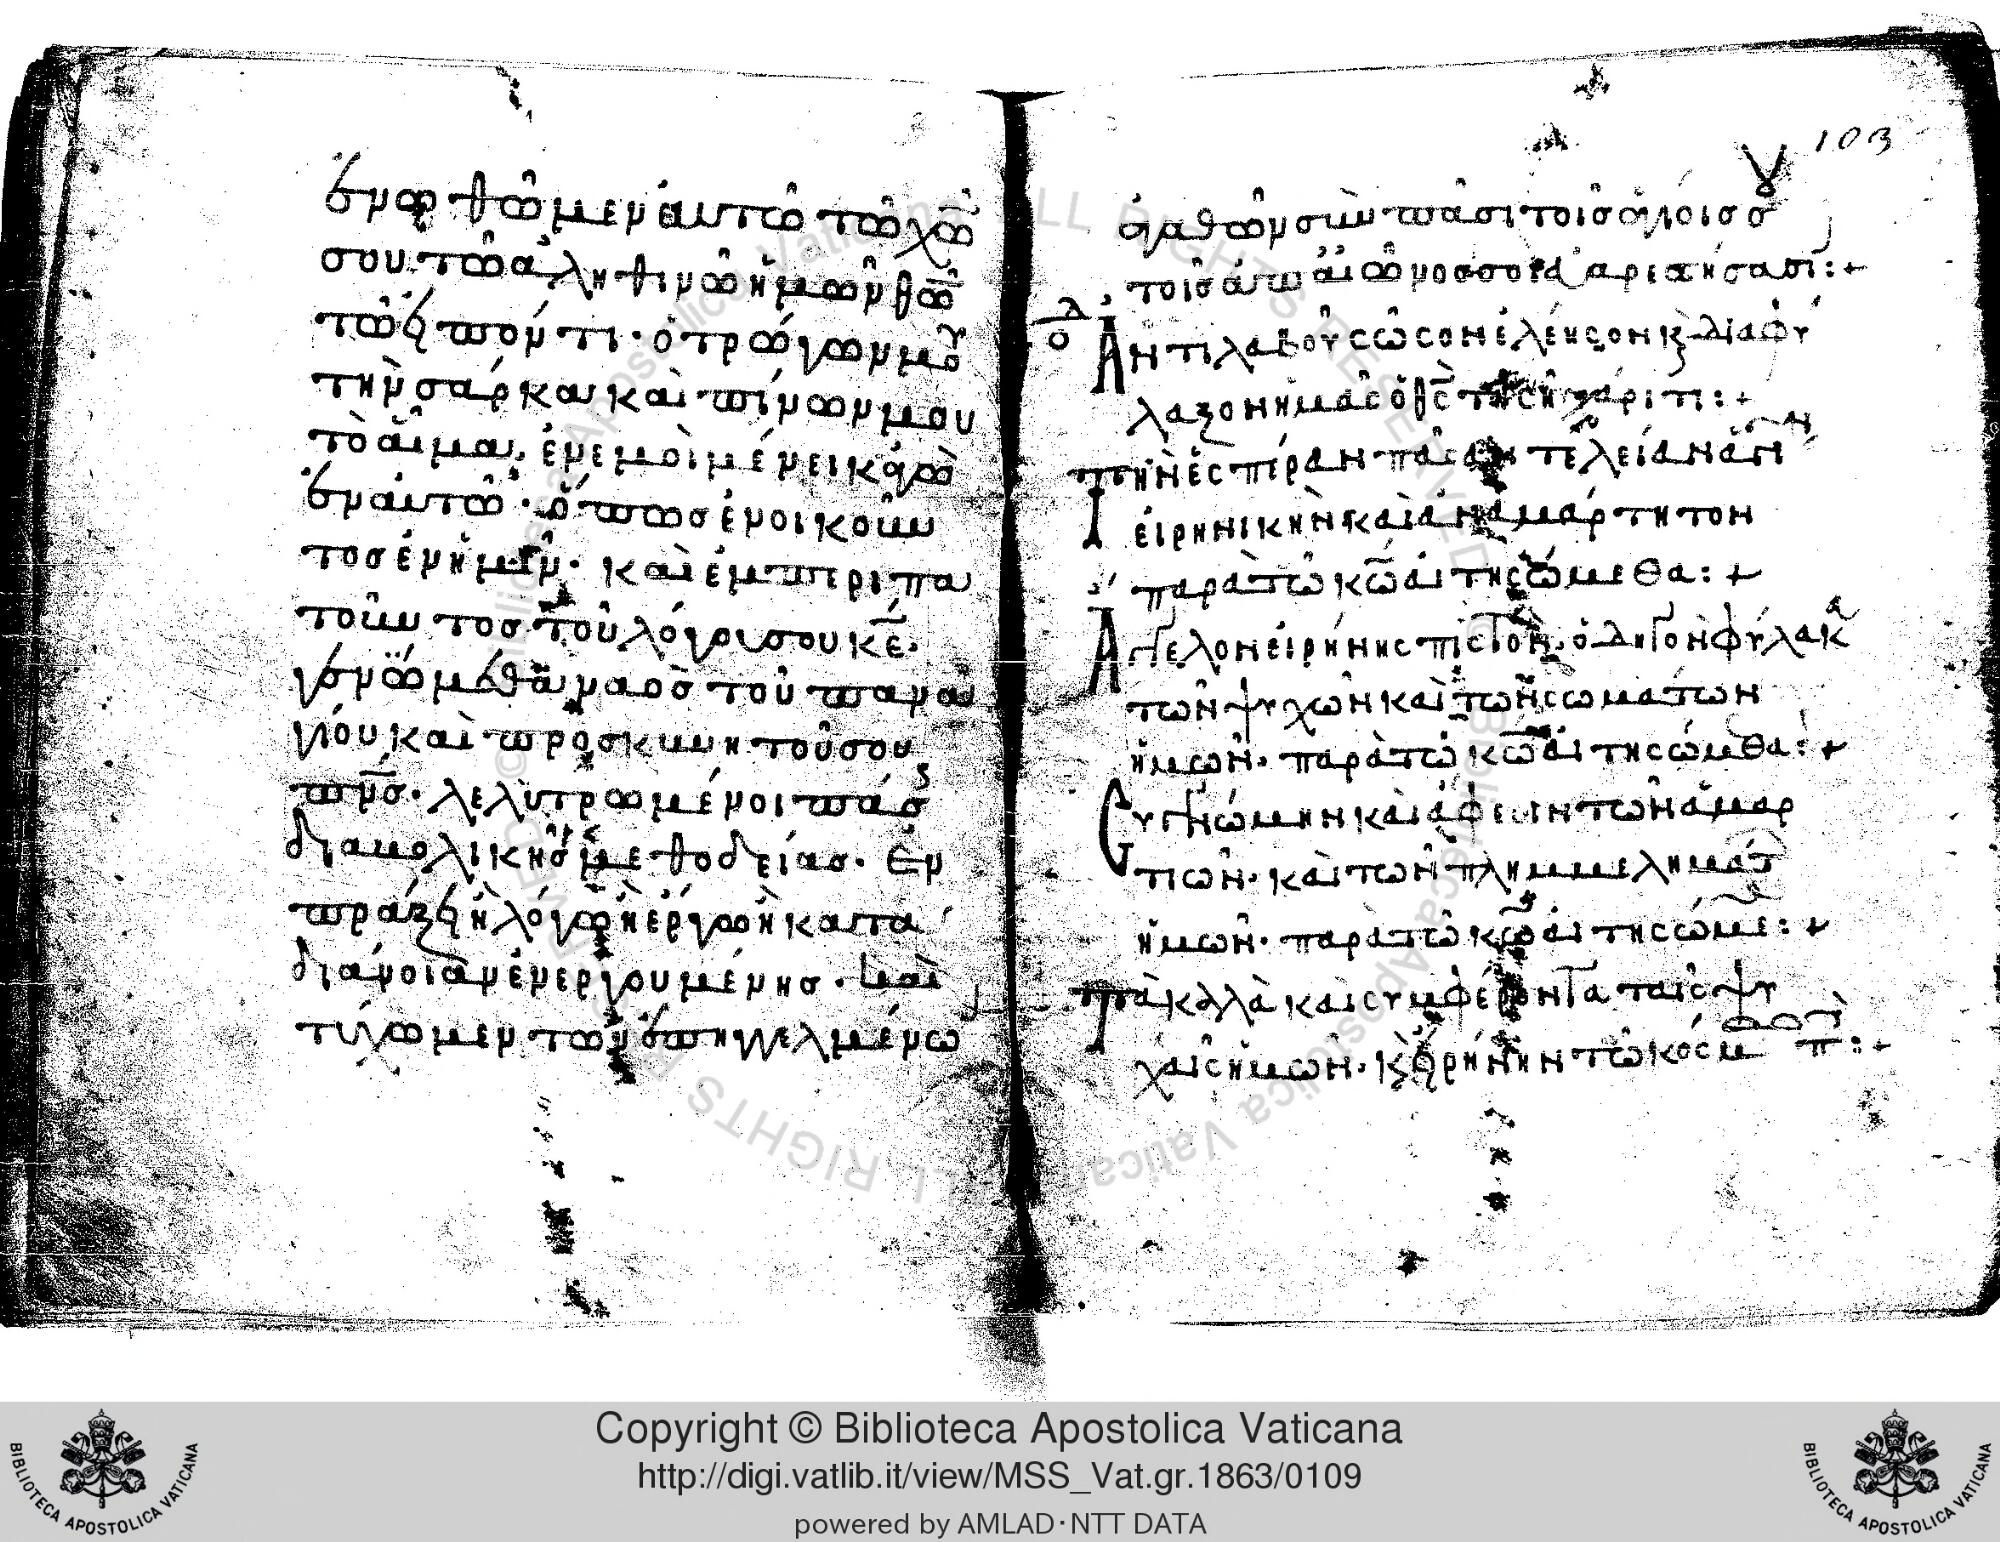 ἑνωθῶμεν ἑαυτῶ τῶ χῶ
σου τῶ ἀληθινῶ ἡμῶν θῶ
τῶ εἰπόντι· ὁ τρώγων μου
τὴν σάρκαι καὶ πίνων μου
τὸ αἷμα, ἐν ἐμοὶ μένει κἀγὼ
ἐν αὐτῶ· ὅπως ἐνοικοῦν
τος ἐν ἡμῖν· καὶ ἐμπεριπα
τοῦντος τοῦ λόγου σου κε̅·
γενώμεθα ναὸς τοῦ παναγ
γίου καὶ προσκυνητοῦ σου
πν̅ς· λελυτρωμένοι πάσ
διαβολικῆς μεθοδείας· ἐν
πράξει ἢ λόγω ἢ ἔργω ἢ κατα
διάνοιαν ἐνεργουμένης· καὶ
τύχωμεν τῶν ἐπηγγελμένω
ἀγαθῶν σὺν πᾶσι τοῖς ἁγίοις σου
τοῖς ἀπ αἰῶνος σοι εὐαριστήσασι:+
Ἀντιλαβοῦ σῶσον ἐλέησον κ διαφύ
λαξον ἡμᾶς ὁ θς τῆ σῆ χάριτι:+
Τὴν ἑσπέραν πᾶσαν τελείαν ἁγί
εἰρηνικὴν καὶ ἀναμάρτητον
παρὰ τῶ κῶ αἰτησώμεθα:+
Ἄγγελον εἰρήνης πιστὸν· ὁδηγὸν φύλακα
τῶν ψυχῶν καὶ τῶν σωμάτων
ἡμῶν· παρὰ τῶ κῶ αἰτησώμθα:+
Συγγνώμην καὶ ἄφεσιν τῶν ἁμαρ
τιῶν· καὶ τῶν πλημμελημάτ
ἡμῶν· παρὰ τῶ κῶ αἰτησώμε:+
Τὰ καλὰ καὶ συμφέροντα ταῖς ψυ
χαῖς ἡμῶν· κ εἰρήνην τῶ κόσμ π:+
103
Copyright © Biblioteca Apostolica Vaticana
http://digi.vatlib.it/view/MSS_Vat.gr.1863/0109
powered by AMLAD·NTT DATA